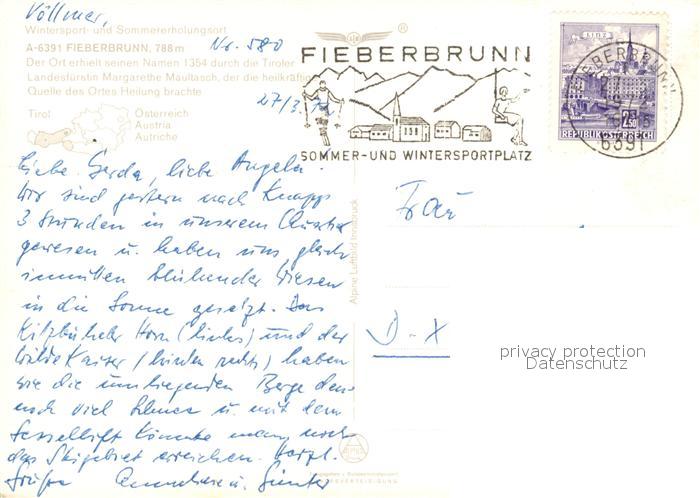 Völlmer,
Wintersport- und Sommererholungsort
A-6391 FIEBERBRUNN, 788 m
Der Ort erhielt seinen Namen 1354 durch die Tiroler
Landesfürstin Margarethe Maultasch, der die heilkräftige
Quelle des Ortes Heilung brachte
Nr. 580
27/3. 72
Tirol
Österreich
Austria
Autriche
FIEBERBRUNN
SOMMER- UND WINTERSPORTPLATZ
LINZ
2.50
REPUBLIK ÖSTERREICH
FIEBERBRUNN
6391
Liebe Gerda, liebe Angela.
Wir sind gestern nach knapp
3 Stunden in unserem Quartier
gewesen u. haben uns gleich
inmitten blühender Wiesen
in die Sonne gesetzt. Das
Kitzbüheler Horn (links) und der
Wilde Kaiser (hinten rechts) haben
wie die umliegenden Berge
noch viel Schnee u. mit dem
Sessellift könnte man noch
das Skigebiet erreichen. Herzl.
Grüße Annemarie u. Günter
Alpine Luftbild Innsbruck
Frau
D-X
privacy protection
Datenschutz